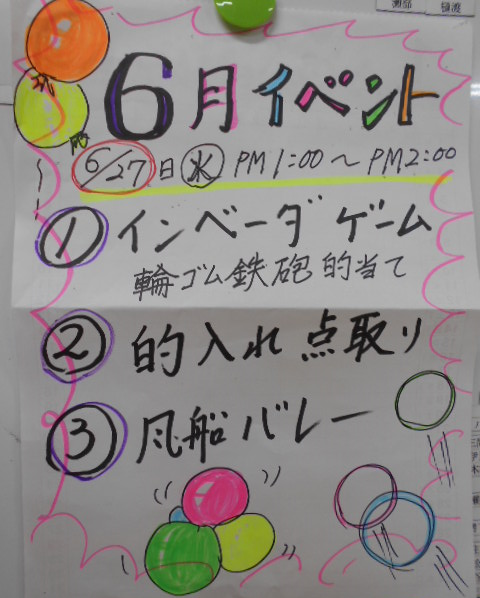 6月イベント
6/27日㊌ PM1:00〜PM2:00
① インベーダゲーム
輪ゴム鉄砲 的当て
② 的入れ点取り
③ 風船バレー